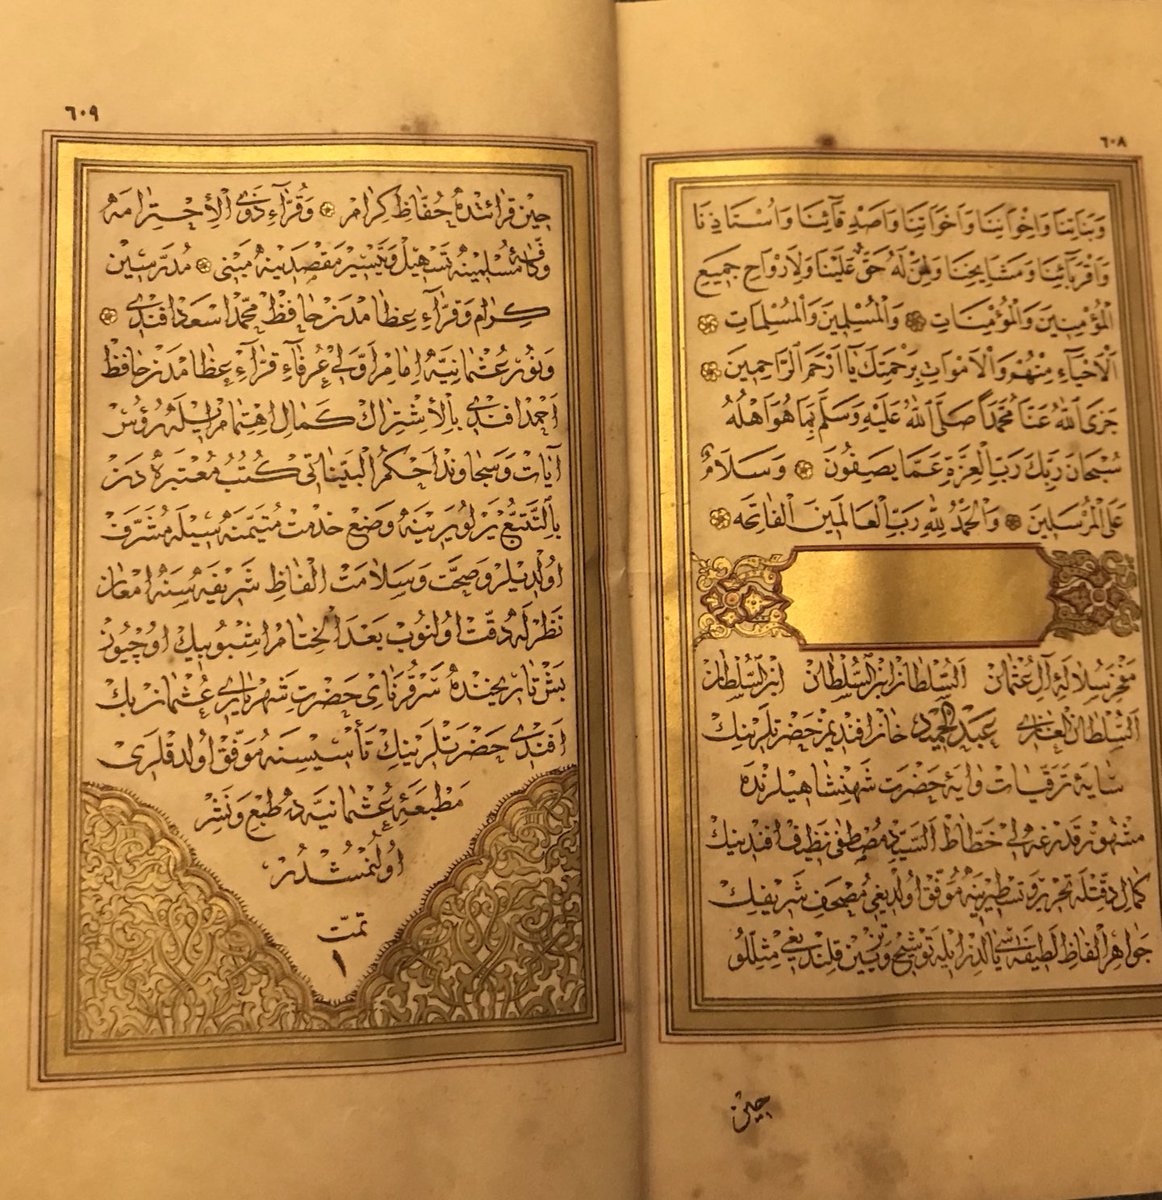 ٦٠٨
وَبَنَاتِنَا وَاِخْوَانِنَا وَاَخَوَاتِنَا وَاَصْدِقَآئِنَا وَاُسْتَاذِنَا
وَاَقْرِبَآئِنَا وَمَشَايِخِنَا وَلِمَنْ لَهُ حَقٌّ عَلَيْنَا وَلِاَرْوَاحِ جَمِيعِ
الْمُؤْمِنِينَ وَالْمُؤْمِنَاتِ وَالْمُسْلِمِينَ وَالْمُسْلِمَاتِ
اَلْاَحْيَآءِ مِنْهُمْ وَالْاَمْوَاتِ بِرَحْمَتِكَ يَا اَرْحَمَ الرَّاحِمِينَ
جَزَى اللّٰهُ عَنَّا مُحَمَّدًا صَلَّى اللّٰهُ عَلَيْهِ وَسَلَّمَ بِمَا هُوَ اَهْلُهُ
سُبْحَانَ رَبِّكَ رَبِّ الْعِزَّةِ عَمَّا يَصِفُونَ وَسَلَامٌ
عَلَى الْمُرْسَلِينَ وَالْحَمْدُ لِلّٰهِ رَبِّ الْعَالَمِينَ الْفَاتِحَه
مفخر سلالهٔ آل عثمان السلطان ابن السلطان ابن السلطان
السلطان الغازى عبد الحميد خان افنديمز حضرتلرينك
سايهٔ ترقيات وايهٔ حضرت شهنشاهيلرنده
مشهور قدرغه لى خطاط السيد مصطفى نظيف افندينك
كمال دقتله تحرير و تسطيرينه موفق اولديغى مصحف شريفك
جواهر الفاظ لطيفه سى يالديز ايله توشيح وتزيين قلنديغى مثللو
حين
٦٠٩
حين قرائتنده حفاظ كرام وقراء ذوى الاحترامه
وكافهٔ مسلمينه تسهيل وتيسير مقصدينه مبنى مدرسين
كرام وقراء عظامدن حافظ محمد اسعد افندى
ونور عثمانيه امام اولى عرفاء قراء عظامدن حافظ
احمد افندى بالاشتراك كمال اهتمام ايله رؤس
آيات وسجاوند احكم البيناتى كتب معتبره دن
بالتتبع يرلويرينه وضع خدمت متيمنه سيله مشرف
اولديلر وصحت وسلامت الفاظ شريفه سنه امعان
نظرله دقت اولنوب بعد الختام اشبو بيك اوچيوز
بش تاريخنده سرقرناى حضرت شهريارى عثمان بك
افندى حضرتلرينك تأسيسنه موفق اولدقلرى
مطبعهٔ عثمانيه ده طبع ونشر
اولنمشدر
تمت